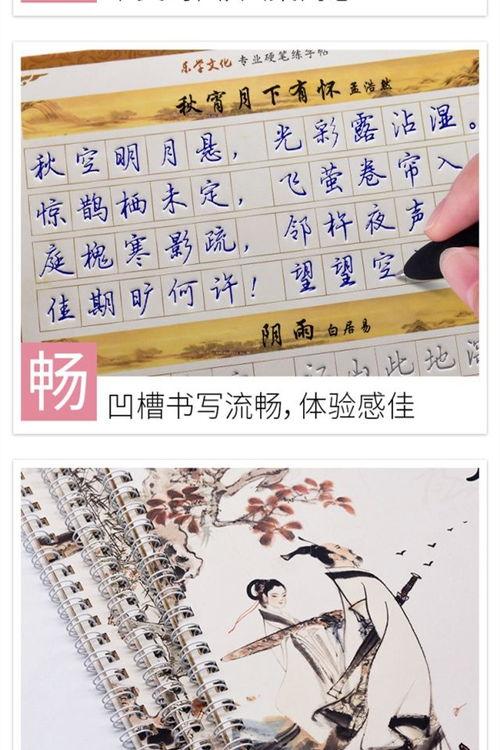 乐学文化 专业硬笔练字帖
秋宵月下有怀 孟浩然
秋空明月悬，光彩露沾湿。
惊鹊栖未定，飞萤卷帘入
庭槐寒影疏，邻杵夜声
佳期旷何许！望望空
阴雨 白居易
江山此地深
畅
凹槽书写流畅，体验感佳